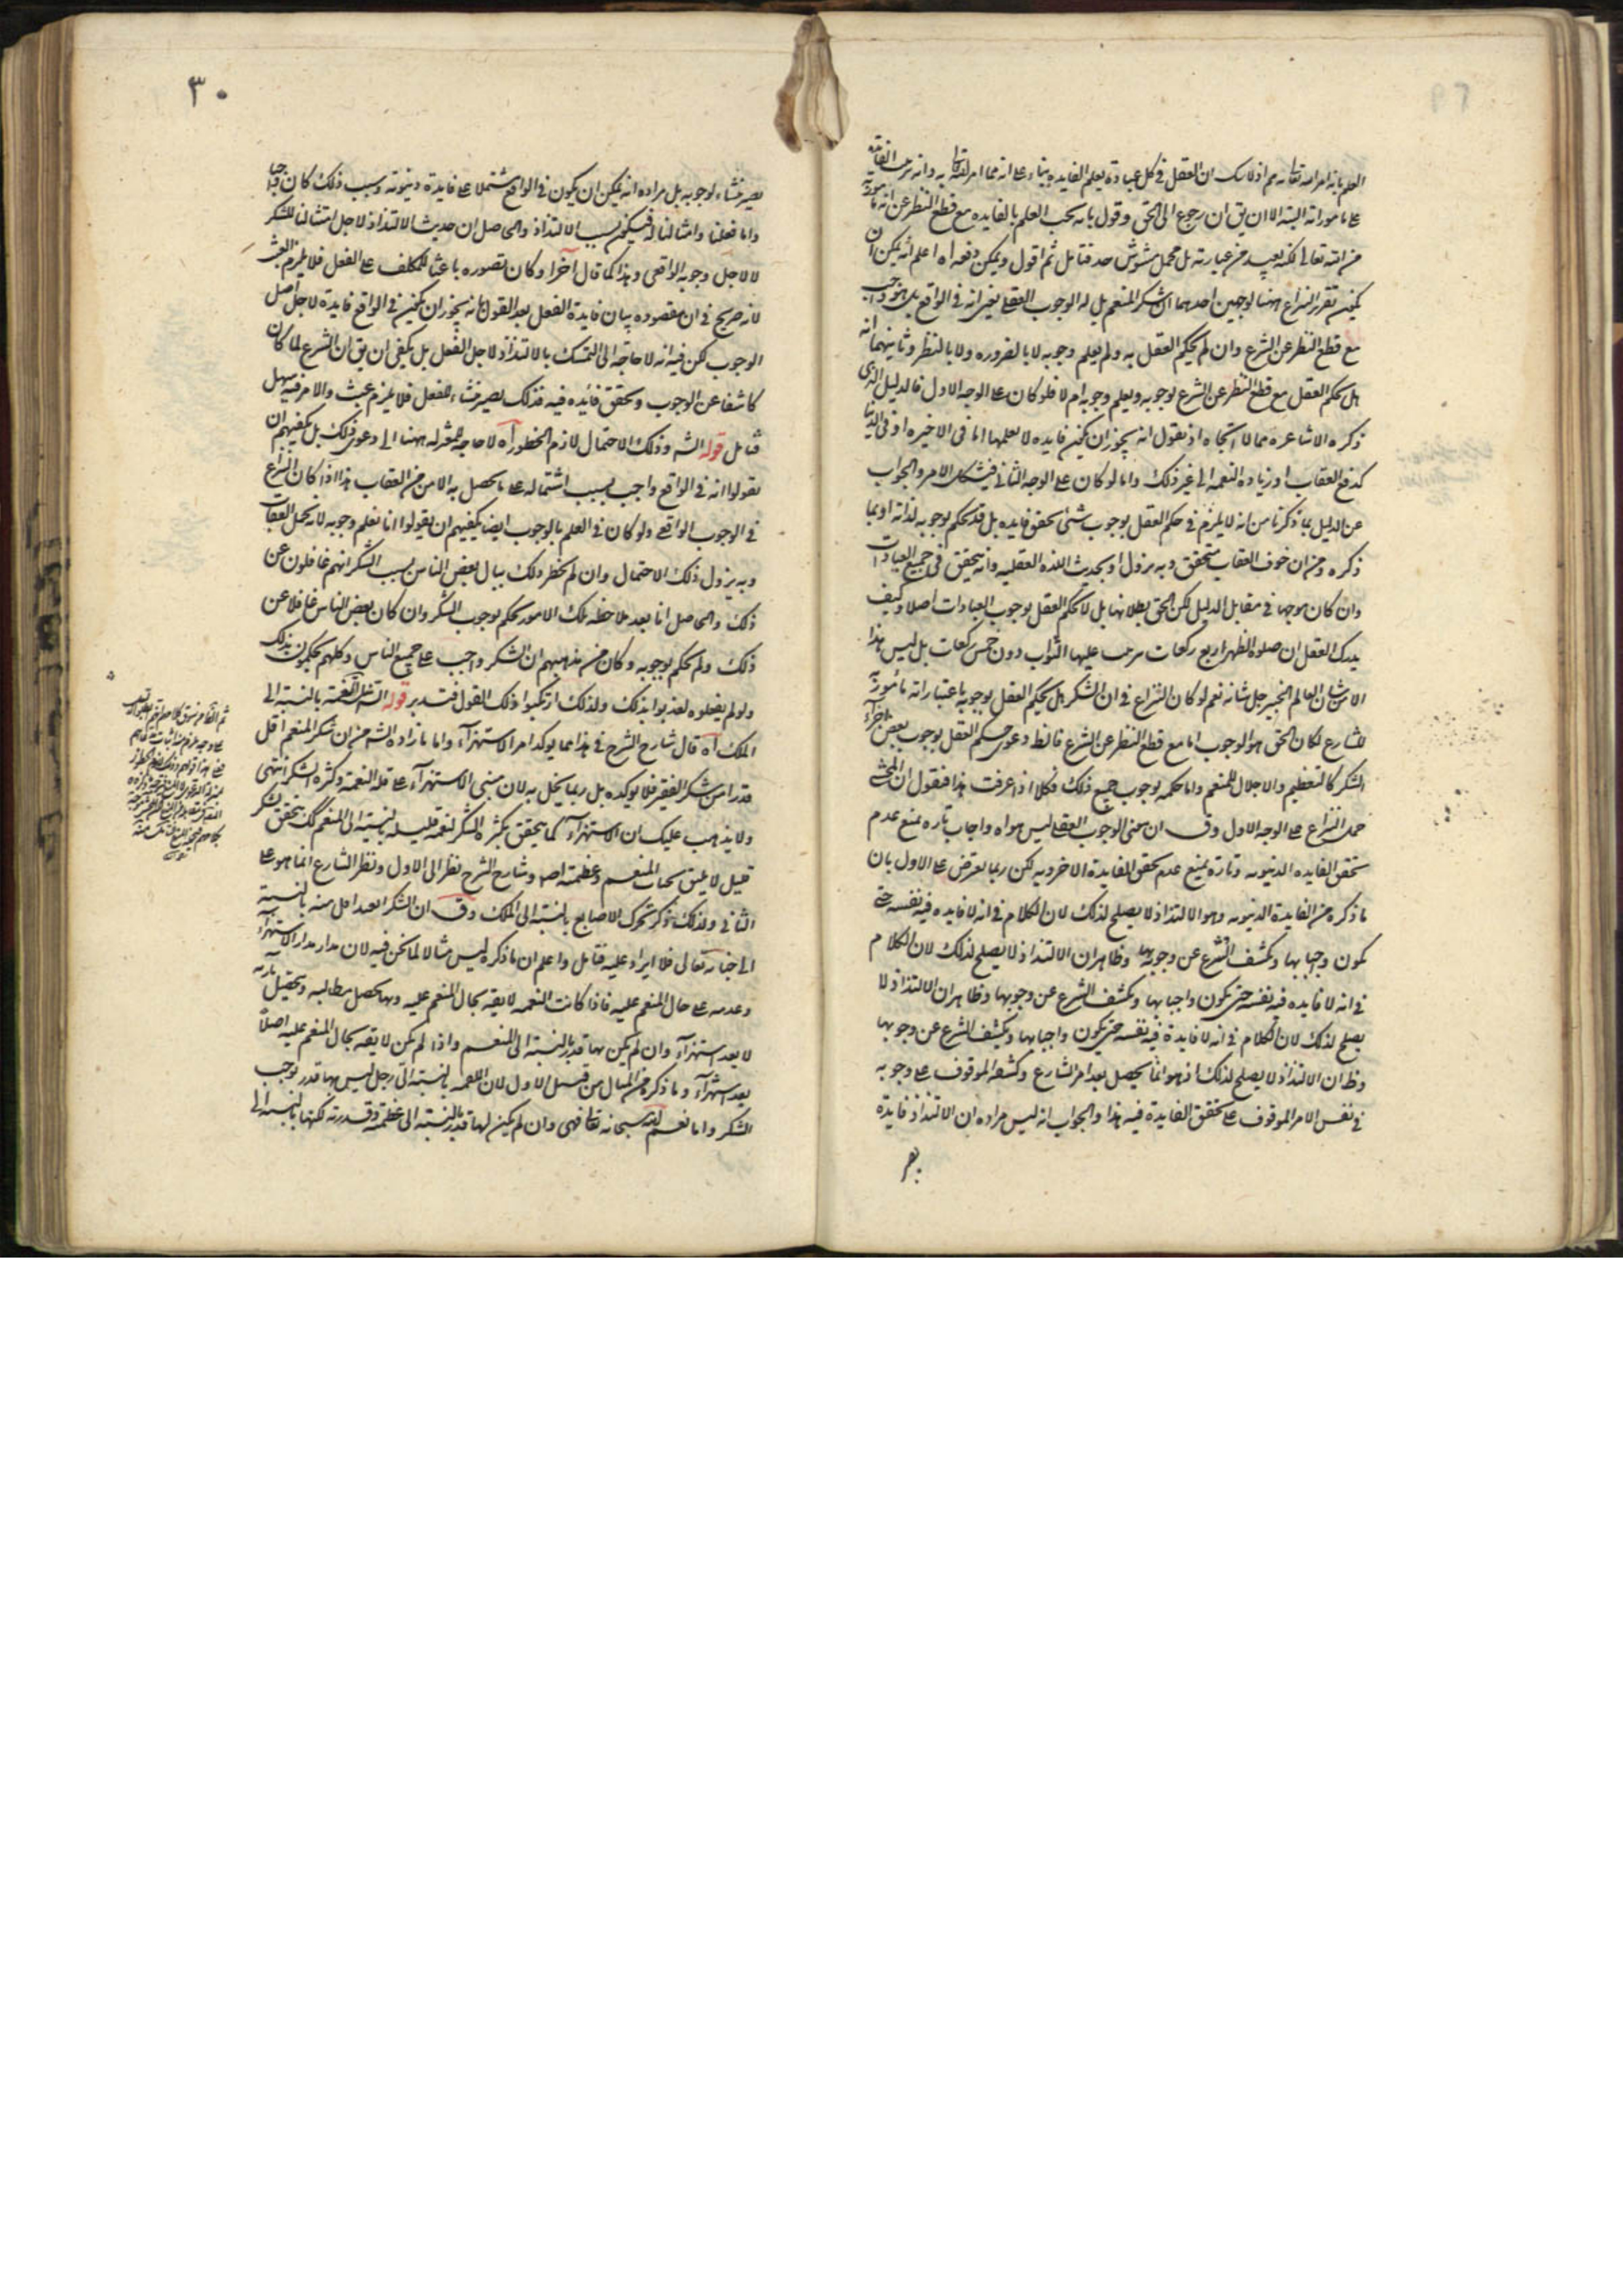 العلم بانه امر الله تعالى به ثم اذ لا شك ان العقل في كل عبادة يعلم الفايدة بناء على انه مما امر الله تعالى به وانه
على مأموراته البتة الا ان يق ان رجوع الى الحق وقول بانه يجب العلم بالفايده مع قطع النظر عن انه مأمور به
من الله تعالى لكنه بعيد من عبارته بل محمل مشوش جدا فتامل ثم اقول ويمكن دفعه اه اعلم انه يمكن ان
يكون تقرير النزاع ههنا لوجهين احدهما ان شكر المنعم هل له الوجوب العقلي يعنى انه في الواقع هل هو واجب
مع قطع النظر عن الشرع وان لم يحكم العقل به ولم يعلم وجوبه لا بالضروره ولا بالنظر وثانيهما انه
هل يحكم العقل مع قطع النظر عن الشرع لوجوبه ويعلم وجوبه ام لا فلو كان على الوجه الاول فالدليل الذى
ذكره الاشاعره مما لا اتجاه له اذ نقول انه يجوز ان يكون فايده لا يعلمها اما في الاخره او في الدنيا
كدفع العقاب او زياده النعمه الى غير ذلك واما لو كان على الوجه الثانى فيشكل الامر والجواب
عن الدليل بما ذكرنا من انه لا يلزم في حكم العقل بوجوب شئ تحقق فايده بل قد يحكم بوجوبه لذاته او بما
ذكره من ان خوف العقاب متحقق وبه يزول او بحديث اللذه العقليه وانه يتحقق في جميع العبادات
وان كان موجها في مقابل الدليل لكن الحق بطلانها بل لا يحكم العقل بوجوب العبادات اصلا وكيف
يدرك العقل ان صلوة الظهر اربع ركعات يترتب عليها الثواب دون خمس ركعات بل ليس هذا
الا من شان العالم الخبير جل شانه نعم لو كان النزاع في ان الشكر هل يحكم العقل بوجوبه باعتبار انه مأمور به
للشارع لكان الحق هو الوجوب اما مع قطع النظر عن الشرع فانما دعوى حكم العقل بوجوب بعض اجزاء
الشكر كالتعظيم والاجلال للمنعم واما حكمه بوجوب جميع ذلك فكلا اذا عرفت هذا فنقول ان المحشى
حمل النزاع على الوجه الاول وق ان معنى الوجوب العقلى ليس هواه واجاب تاره بمنع عدم
تحقق الفايده الدنيويه وتارة بمنع عدم تحقق الفايدة الاخرويه لكن ربما يعترض على الاول بان
ما ذكره من الفايدة الدنيويه وهو الالتذاذ لا يصلح لذلك لان الكلام في انه لا فايده فيه نفسه حتى
يكون واجبا بها ويكشف الشرع عن وجوبها وظاهر ان الالتذاذ لا يصلح لذلك لان الكلام
في انه لا فايده فيه نفسه حتى يكون واجبا بها ويكشف الشرع عن وجوبها وظاهر ان الالتذاذ لا
يصلح لذلك لان الكلام في انه لا فايدة فيه نفسه حتى يكون واجبا بها ويكشف الشرع عن وجوبها
وظ ان الالتذاذ لا يصلح لذلك اذ هو انما يحصل بعد امر الشارع وكشفه الموقوف على وجوبه
في نفس الامر الموقوف على تحقق الفايدة فيه هذا والجواب انه ليس مراده ان الالتذاذ فايدة
٣٠
يصير منشاء لوجوبه بل مراده انه يمكن ان يكون في الواقع مشتملا على فايدة دنيويه وبسبب ذلك كان واجبا
واما فعلنا وامتثالنا له فيكون بسبب الالتذاذ والحاصل ان حديث الالتذاذ لاجل امتثالنا للشكر
لا لاجل وجوبه الواقعى وهذا كما قال آخرا وكان تصوره باعثا للمكلف على الفعل فلا يلزم العبث
لانه صريح في ان مقصوده بيان فايدة الفعل بعد القول بانه يجوز ان يكون في الواقع فايدة لاجل اصل
الوجوب لكن فيه انه لا حاجة الى التمسك بالالتذاذ لاجل الفعل بل يكفى ان يق ان الشرع لما كان
كاشفا عن الوجوب وتحقق فائده فيه فذلك يصير منشاء للفعل فلا يلزم عبث والامر فيه سهل
فتامل قوله الشه وذلك الاحتمال لازم الخطور اه لا حاجة للمعتزله ههنا الى دعوى ذلك بل يكفيهم ان
يقولوا انه في الواقع واجب بسبب اشتماله على ما يحصل به الامن من العقاب هذا اذا كان النزاع
في الوجوب الواقعى ولو كان في العلم بالوجوب ايضا يكفيهم ان يقولوا انا نعلم وجوبه لانه يحتمل العقاب
وبه يزول ذلك الاحتمال وان لم يخطر ذلك ببال بعض الناس بسبب الشكر انهم غافلون عن
ذلك والحاصل انا بعد ملاحظه تلك الامور نحكم بوجوب الشكر وان كان بعض الناس غافلا عن
ذلك ولم يحكم بوجوبه وكان من مذهبهم ان الشكر واجب على جميع الناس وكلهم يحكمون بذلك
ولو لم يفعلوه لعذبوا بذلك ولذلك ارتكبوا ذلك القول فتدبر قوله الشه النعمة بالنسبة الى
الملك اه قال شارح الشرح في هذا مما يوكد امر الاستهزآء واما ما زاده الشه من ان شكر المنعم اقل
قدرا من شكر الفقير فلا يوكده بل ربما يخل به لان مبنى الاستهزآء على قلة النعمة وكثرة الشكر انتهى
ولا يذهب عليك ان الاستهزآء كما يتحقق بكثرة الشكر لنعمة قليله بالنسبة الى المنعم كك يتحقق بشكر
قليل لا يليق بحال المنعم وعظمته اصلا وشارح الشرح نظر الى الاول ونظر الشارع انما هو على
الثانى ولذلك ذكر تحريك الاصابع بالنسبة الى الملك وق ان الشكر العبد اقل منه بالنسبة
الى جنابه تعالى فلا ايراد عليه فتامل واعلم ان ما ذكره ليس مثالا لما نحن فيه لان مدار مدار الاستهزآء
وعدمه على حال المنعم عليه فاذا كانت النعمه لايقه بحال المنعم عليه وبها يحصل مطالبه وتحصيل مآربه
لا يعد استهزآء وان لم يكن بها قدر بالنسبة الى المنعم واذا لم يكن لايقه بحال المنعم عليه اصلاً
يعد استهزآء وما ذكره من المثال من قبيل الاول لان اللقمه بالنسبة الى رجل ليس بها قدر يوجب
الشكر واما نعم الله سبحانه تعالى فهى وان لم يكن لها قدر بالنسبة الى عظمته وقدرته لكنها بالنسبة الى